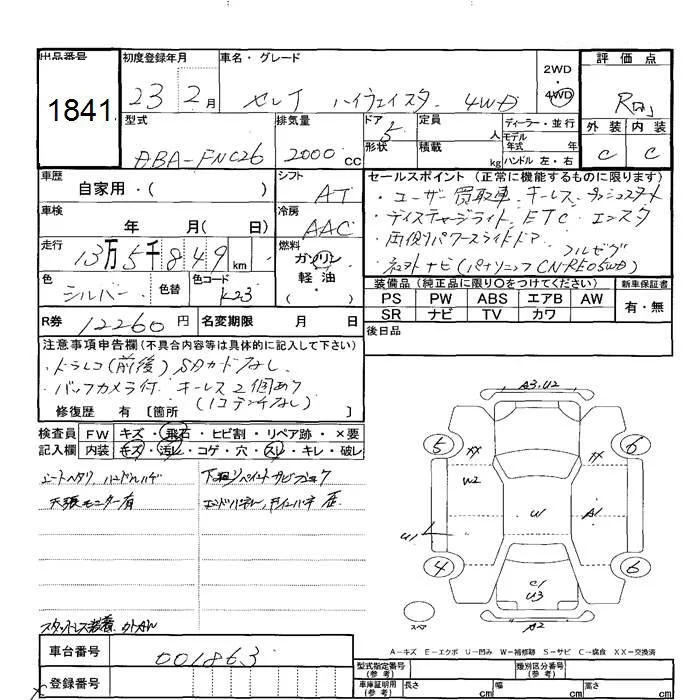 出品番号
1841
初度登録年月
23年 2月
車名・グレード
セレナ ハイウェイスター 4WD
2WD・4WD
評価点
R
外装 内装
C C
型式
DBA-FNC26
排気量
2000cc
ドア 5
形状
定員 人
積載 kg
ディーラー・並行
モデル年式 年式
ハンドル 左・右
車歴
自家用・( )
車検
年 月( 日)
走行
13万5千849km
色
シルバー
色替
色コード
K23
シフト
AT
冷房
AAC
燃料
ガソリン
軽・油
( )
セールスポイント(正常に機能するものに限ります)
・ユーザー買取車 キーレス プッシュスタート
・ディスチャージライト ETC エンスタ
・両側パワースライドドア フルセグ
・ナビ(パナソニック CN-RE05WD)
装備品(純正品に限り○をつけてください)
PS PW ABS エアB AW
SR ナビ TV カワ
新車保証書
有・無
後日品
R券 12260円
名変期限 月 日
注意事項申告欄(不具合内容等は具体的に記入して下さい)
・ドラレコ(前後)SDカードなし
・バックカメラ付 キーレス2個あり
修復歴 有〔箇所 〕
検査員記入欄
FW キズ・飛石・ヒビ割・リペア跡・×要
内装 キズ・汚レ・コゲ・穴・スレ・キレ・破レ
シートヘタリ ハンドルハゲ
天張モニター有
5 6
XX XX
W2
U1
U
A1
4 6
C1
U3
A2
A3.U2
スペア
A-キズ E-エクボ U-凹み W-補修跡 S-サビ C-腐食 XX-交換済
車台番号
001863
登録番号
型式指定番号(参考)
類別区分番号(参考)
車庫証明用(参考)
長さ cm
幅 cm
高さ cm